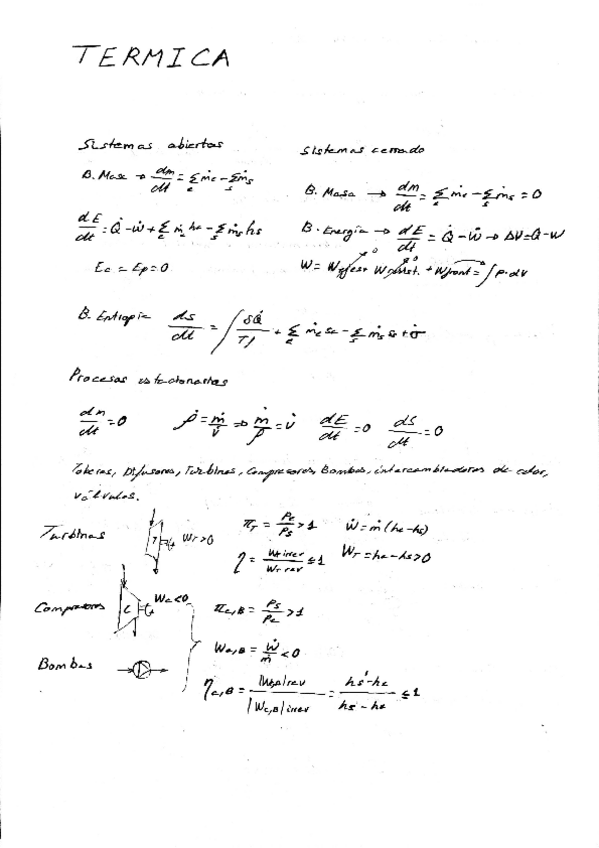 TERMICA
Sistemas abiertos
B. Masa → dm/dt = Σe ṁe - Σs ṁs
dE/dt = Q̇ - Ẇ + Σe ṁe he - Σs ṁs hs
Ec = Ep = 0
Sistemas cerrado
B. Masa → dm/dt = Σe ṁe - Σs ṁs = 0
B. Energía → dE/dt = Q̇ - Ẇ → ΔU = Q - W
= ∫ p·dV
B. Entropía dS/dt = ∫ δQ̇/Tf + Σe ṁe se - Σs ṁs ss + σ̇
Procesos estacionarios
dm/dt = 0 ρ̇ = ṁ/v̇ ⇒ ṁ/ρ = v̇ dE/dt = 0 dS/dt = 0
Toberas, Difusores, Turbinas, Compresores, Bombas, intercambiadores de calor,
válvulas.
Turbinas T WT > 0 πT = Pe/Ps > 1 Ẇ = ṁ(he - hs)
η = WT irrev/WT rev ≤ 1 WT = he - hs > 0
Compresores C Wc < 0 πC,B = Ps/Pe > 1
WC,B = Ẇ/ṁ < 0
Bombas
ηC,B = |WC,B| rev/|WC,B| irrev = hs' - he/hs - he ≤ 1